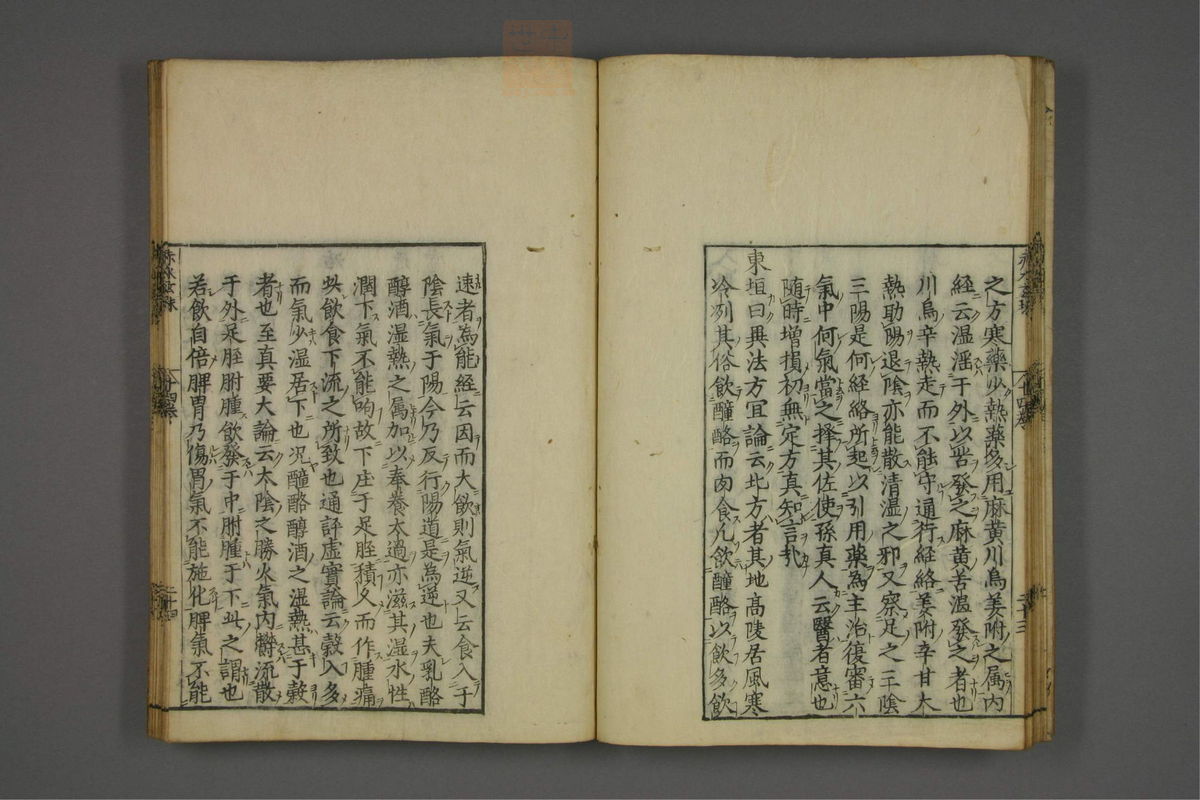 之方寒藥少熱藥多用麻黄川烏姜附之属内
経云湿淫于外以苦發之麻黄苦温發之者也
川烏辛熱走而不能守通行経絡姜附辛甘大
熱助陽退陰亦能散清湿之邪又察足之三陰
三陽是何経絡所起以引用藥為主治復審六
氣中何氣當之择其佐使孫真人云醫者意也
随時增損初無定方真知言哉
東垣曰異法方宜論云北方者其地高陵居風寒
冷冽其俗飲醴酪而肉食凢飲醴酪以飲多飲
速者為能経云因而大飲則氣逆又云食入于
陰長氣于陽今乃反行陽道是為逆也夫乳酪
醇酒湿熱之属加以奉養太過亦滋其湿水性
潤下氣不能呴故下庄于足脛積久而作腫痛
此飲食下流之所致也通評虚實論云穀入多
而氣少湿居下也况醴酪醇酒之湿熱甚于穀
者也至真要大論云太陰之勝火氣内欝流散
于外足脛胕腫飲發于中胕腫于下此之謂也
若飲自倍脾胃乃傷胃氣不能施化脾氣不能
赤水玄珠
二十四